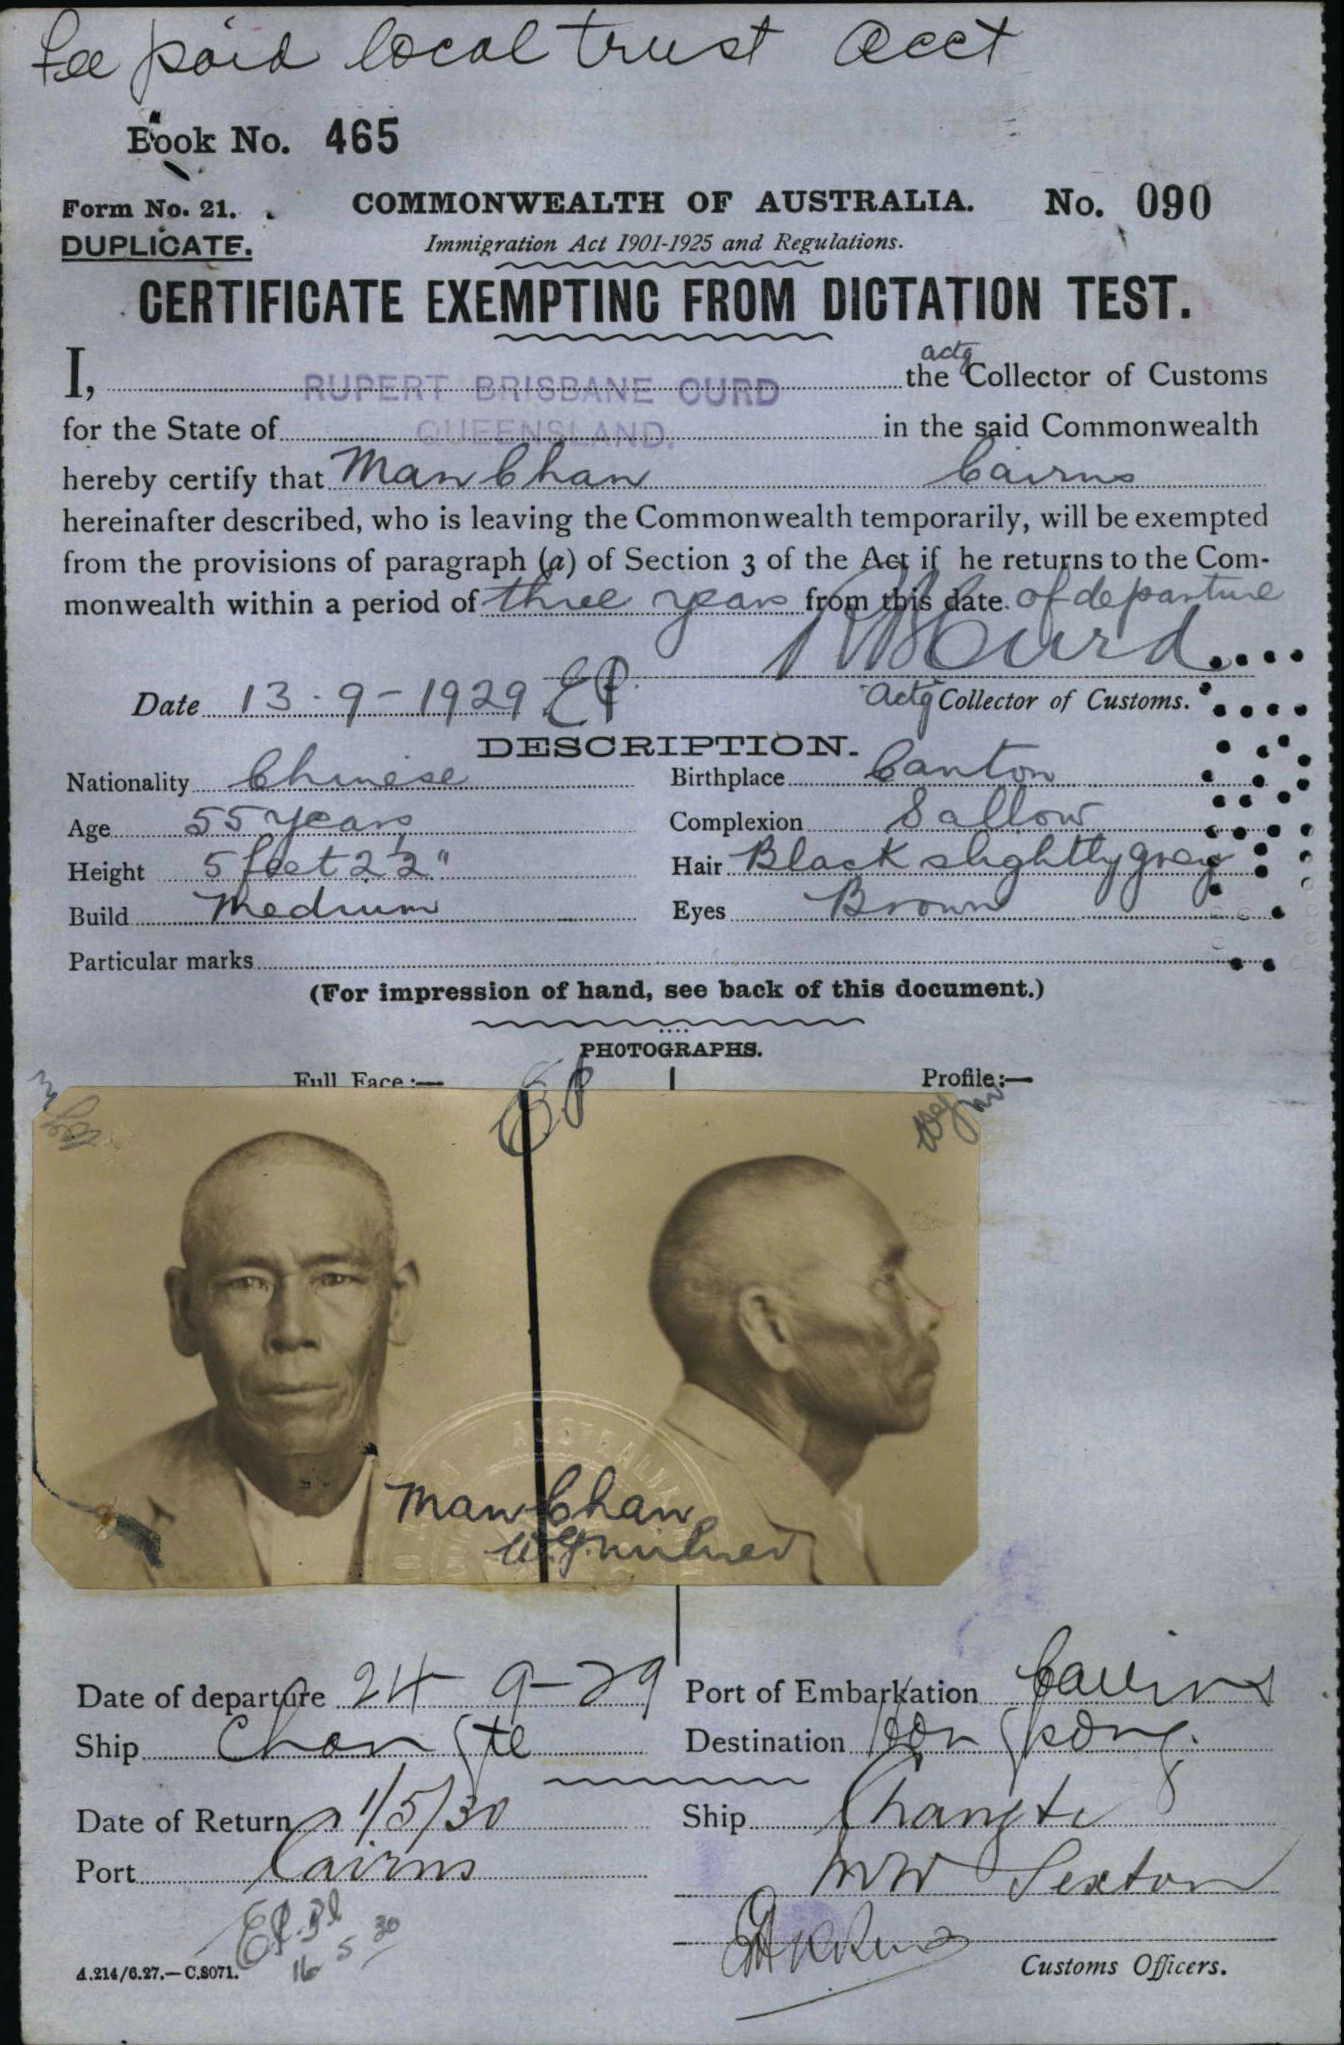 Fee paid local trust acct
Book No. 465
Form No. 21. COMMONWEALTH OF AUSTRALIA. No. 090
DUPLICATE. Immigration Act 1901-1925 and Regulations.
CERTIFICATE EXEMPTING FROM DICTATION TEST.
actg
I, RUPERT BRISBANE CURD the Collector of Customs
for the State of QUEENSLAND. in the said Commonwealth
hereby certify that Man Chan Cairns
hereinafter described, who is leaving the Commonwealth temporarily, will be exempted
from the provisions of paragraph (a) of Section 3 of the Act if he returns to the Com-
monwealth within a period of three years from this date of departure
R B Curd
Date 13-9-1929 EP actg Collector of Customs.
DESCRIPTION.
Nationality Chinese Birthplace Canton
Age 55 years Complexion Sallow
Height 5 feet 2½" Hair Black slightly grey
Build Medium Eyes Brown
Particular marks
(For impression of hand, see back of this document.)
PHOTOGRAPHS.
Full Face:— Profile:—
EP
Man Chan
W.G. Milner
Date of departure 24-9-29 Port of Embarkation Cairns
Ship Changte Destination Hon Kong.
Date of Return 1/5/30 Ship Changte
Port Cairns
W W Sexton
16 5 30
A.214/6.27.—C.8071. Customs Officers.